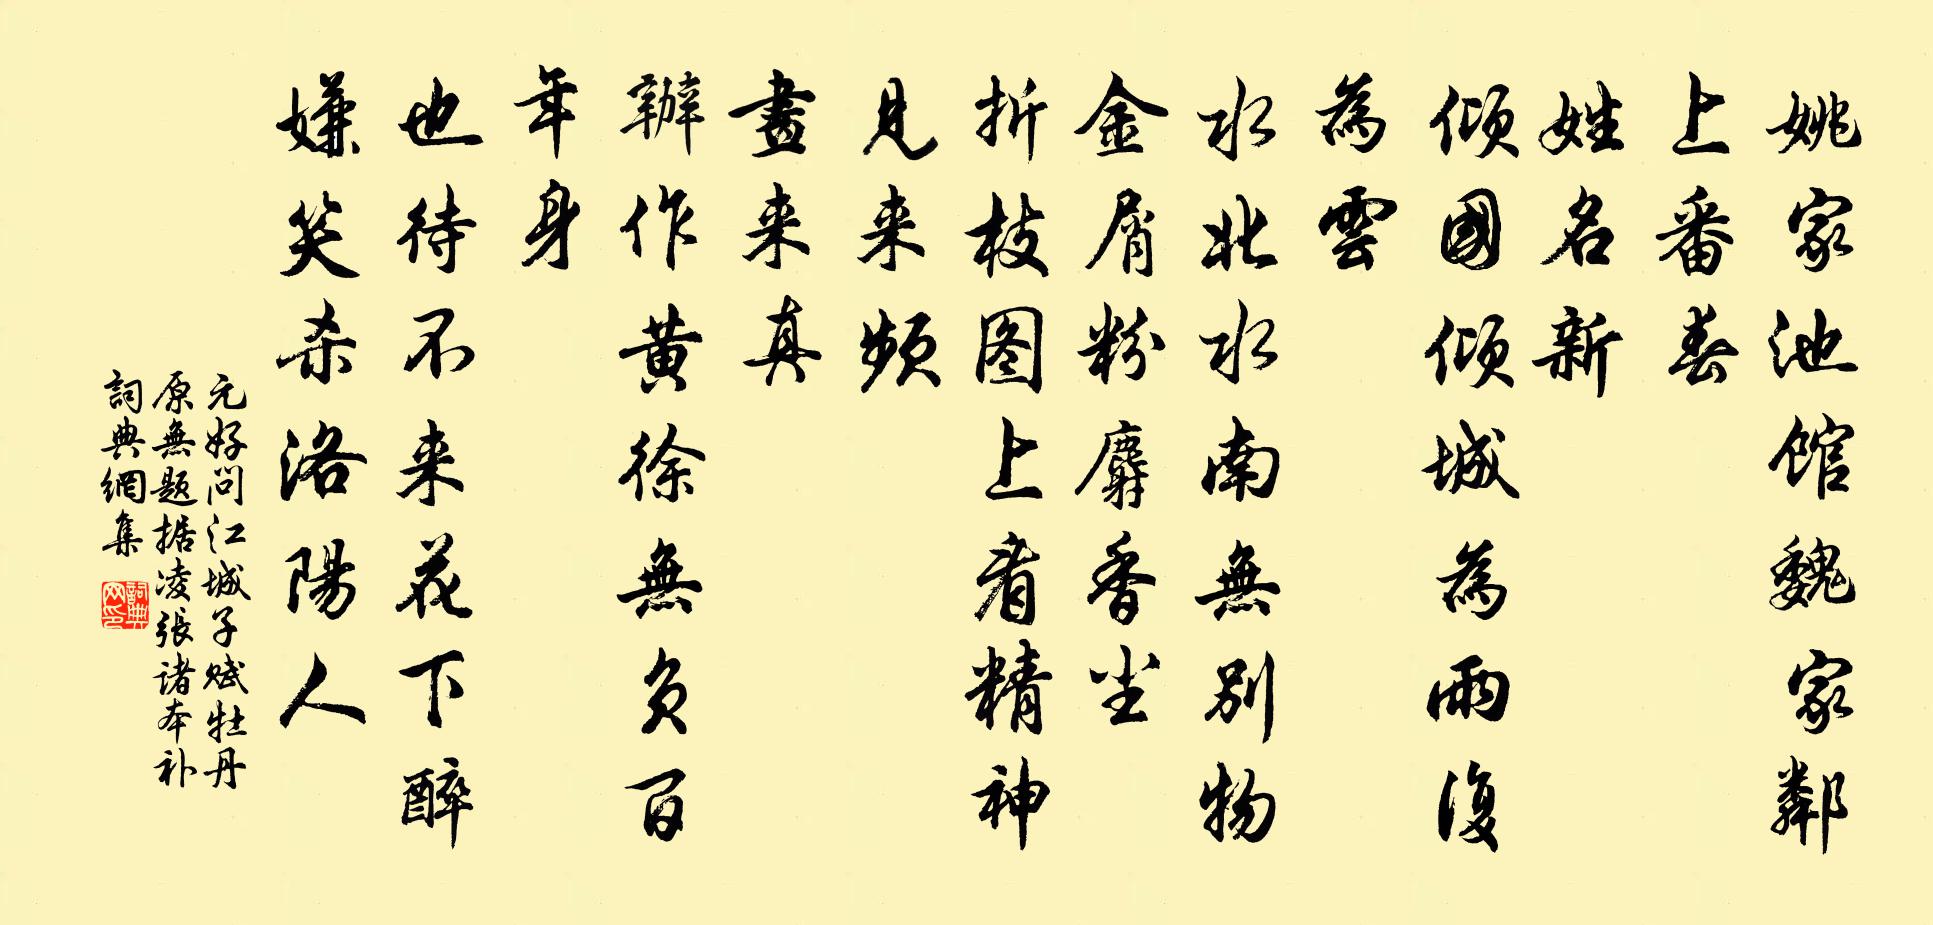 姚家池馆魏家鄰
上番春
姓名新
傾國傾城為雨復
為雲
水北水南無別物
金屑粉麝香尘
折枝图上看精神
見来頻
畫来真
辦作黄徐無负百
年身
也待不来花下醉
嫌笑杀洛陽人
元好问江城子赋牡丹
原無题据凌張诸本补
詞典網集
詞典
网印